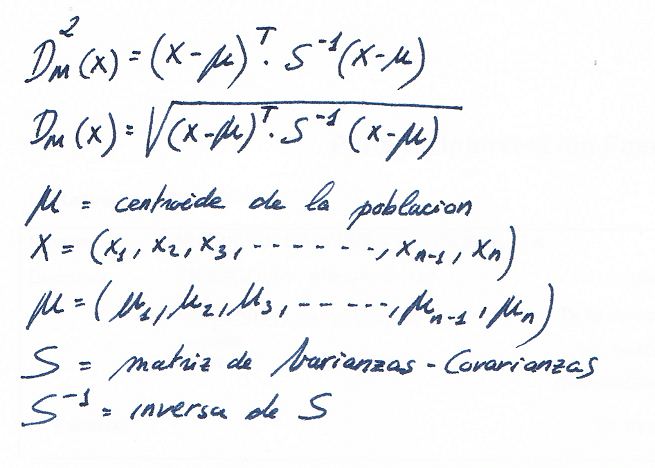 D²ₘ(x) = (x-μ)ᵀ. S⁻¹(x-μ)
Dₘ(x) = √((x-μ)ᵀ. S⁻¹ (x-μ))
μ = centroide de la poblacion
X = (x₁, x₂, x₃, -------, xₙ₋₁, xₙ)
μ = (μ₁, μ₂, μ₃, -----, μₙ₋₁, μₙ)
S = matriz de Varianzas - Covarianzas
S⁻¹ = inversa de S